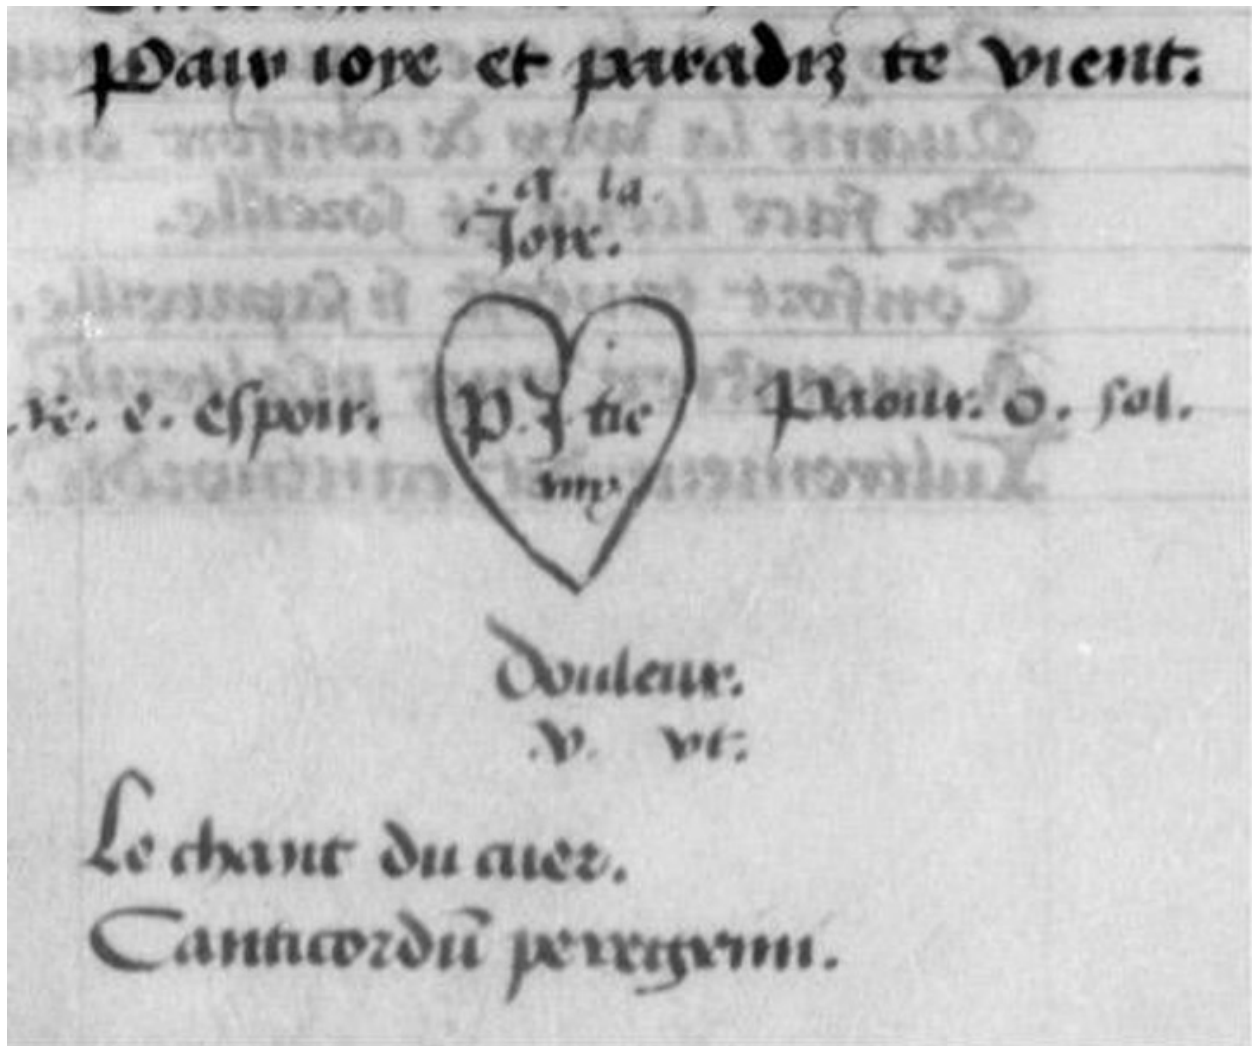 Paix ioye et paradiz te vient.
. a. la.
Joie.
.re. e. espoir. P. J tie Paour. o. sol.
my
douleur.
.v. vt.
Le chant du cuer.
Canticordū peregrini.